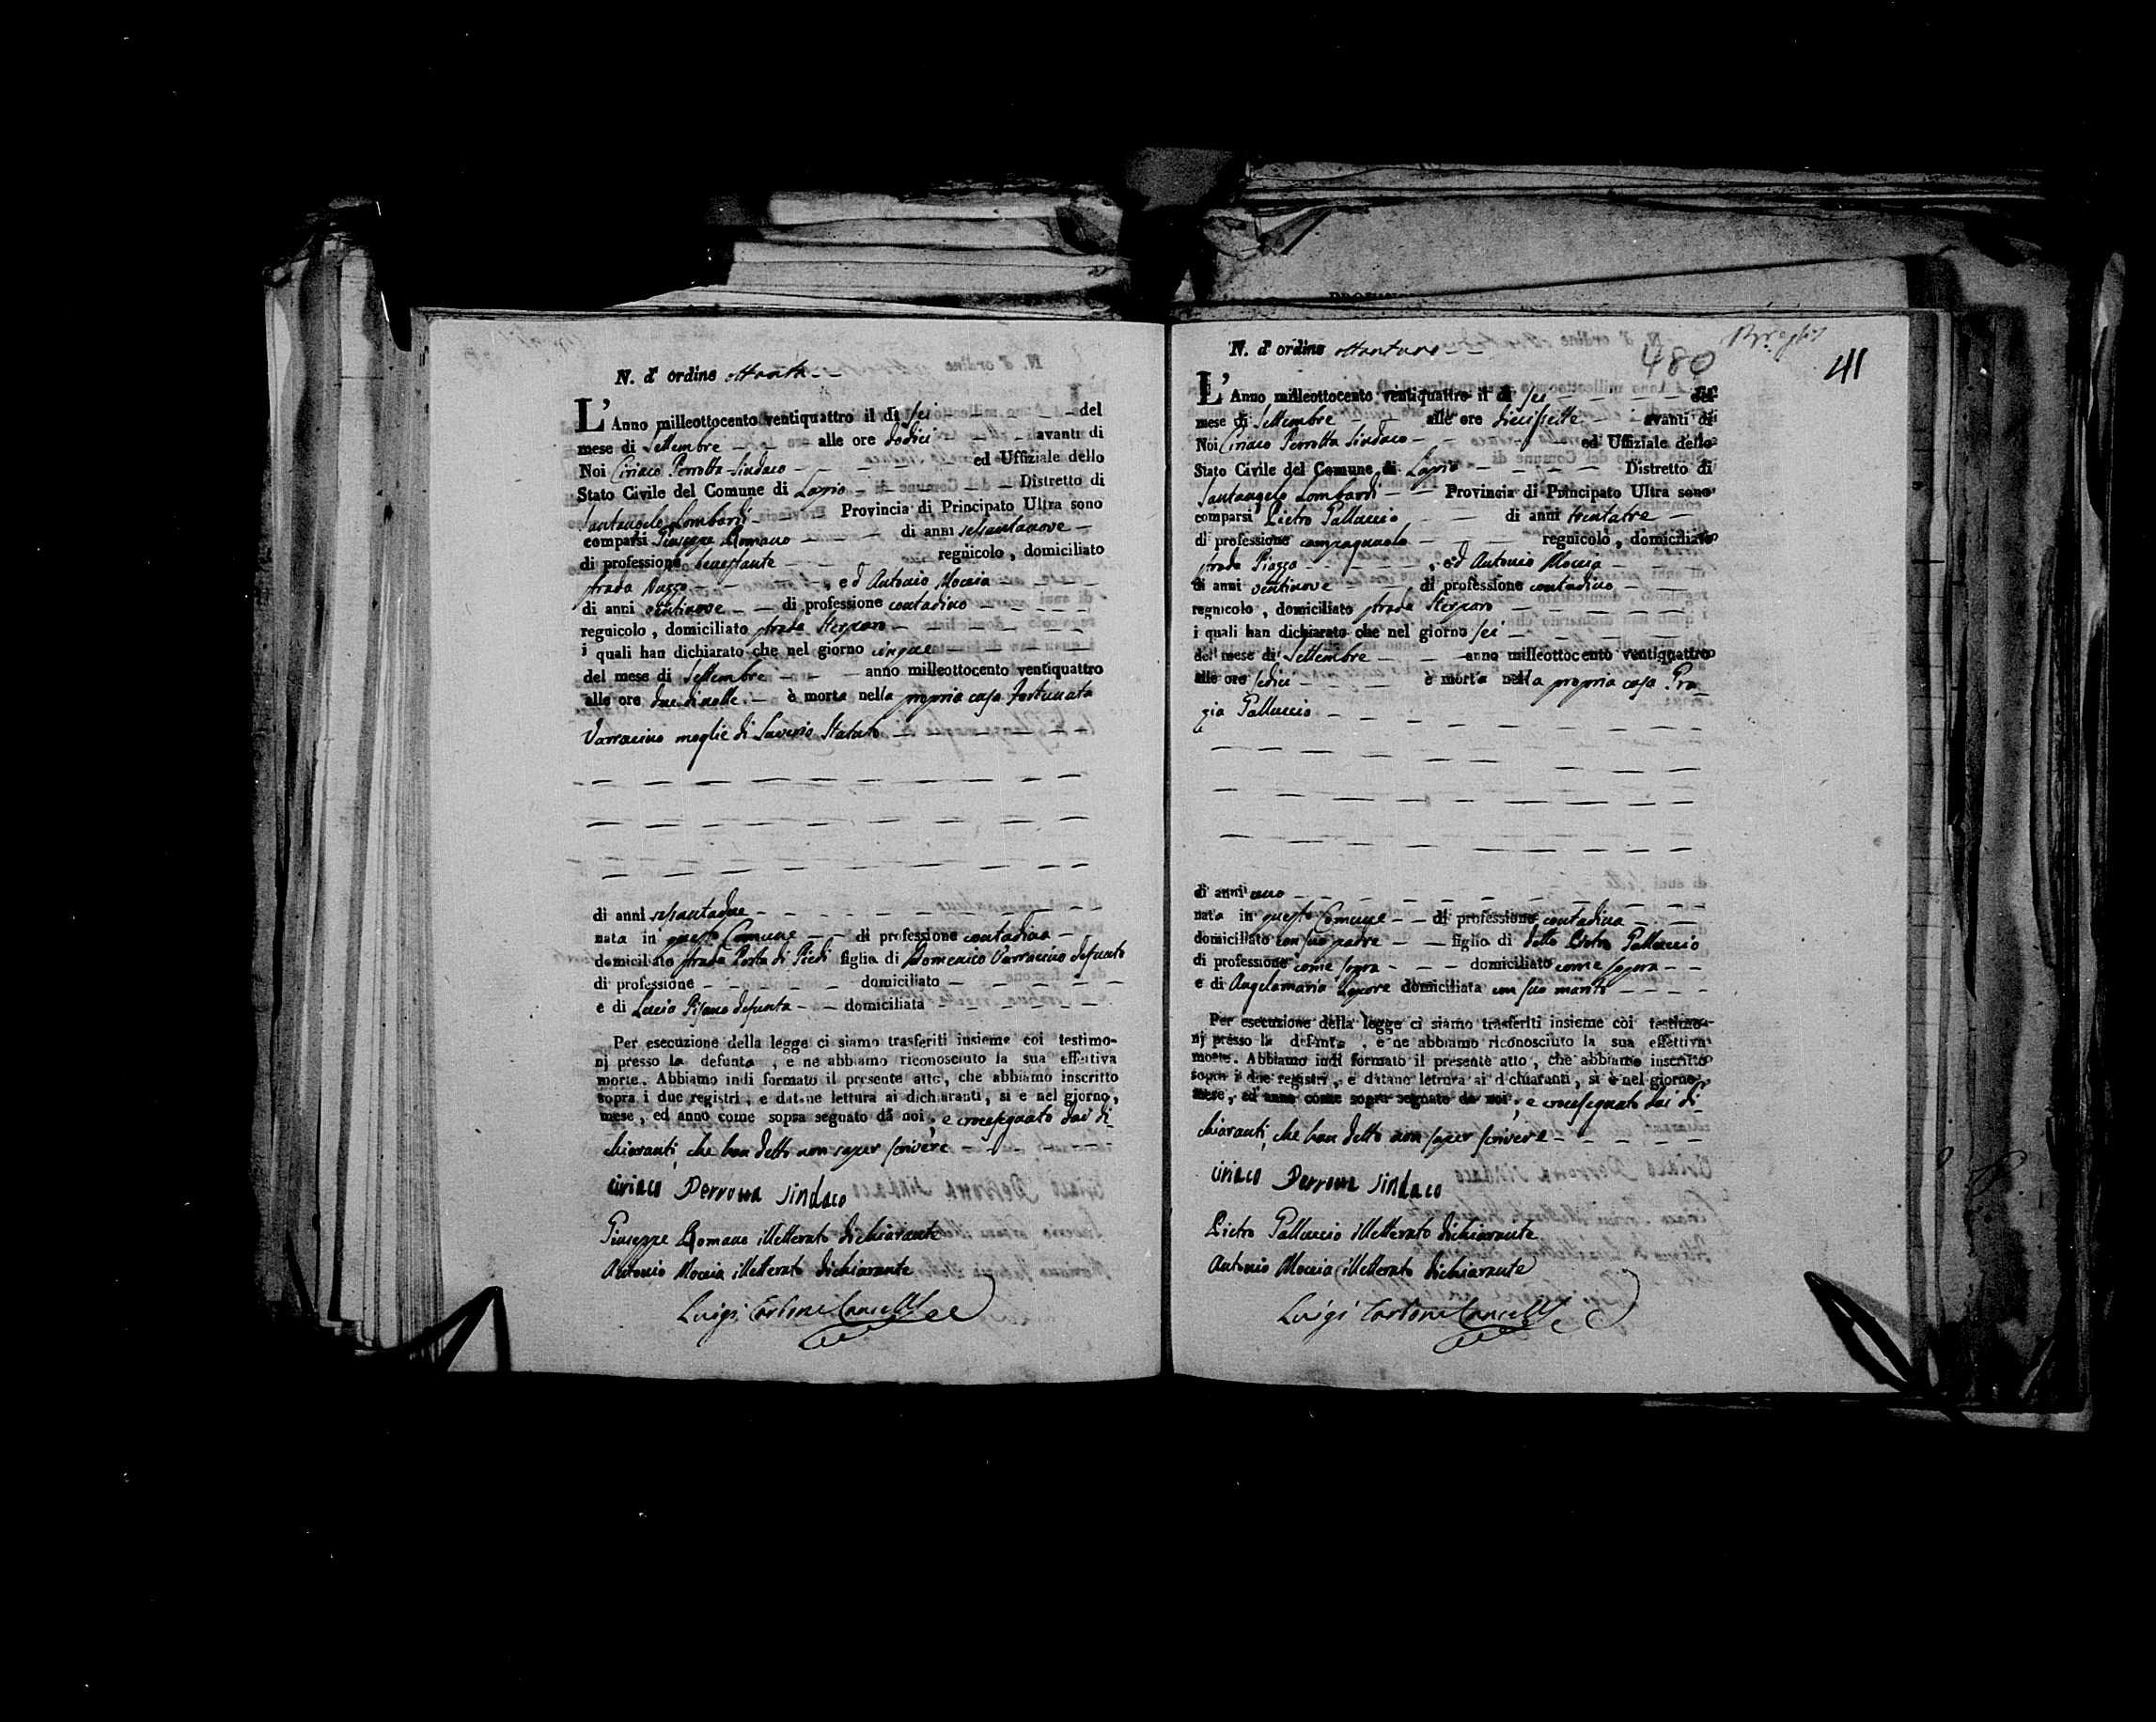 N. d' ordine ottanta
L' Anno milleottocento ventiquattro il dì sei del
mese di Settembre alle ore dodici avanti di
Noi Ciriaco Perrotta Sindaco ed Uffiziale dello
Stato Civile del Comune di Lapio Distretto di
Santangelo Lombardi Provincia di Principato Ultra sono
comparsi Giuseppe Romano di anni sessantanove
di professione benestante regnicolo, domiciliato
strada , ed Antonio Moccia
di anni ventinove di professione contadino
regnicolo, domiciliato strada Sterparo
i quali han dichiarato che nel giorno cinque
del mese di Settembre anno milleottocento ventiquattro
alle ore due di notte è morta nella propria casa Fortunata
Varracino moglie di Saverio Statuto
di anni sessantadue
nata in questo Comune di professione contadina
domiciliato strada Porta di Piedi figlia di Domenico Varracino defunto
di professione domiciliato
e di Lucia Pisano defunta domiciliata
Per esecuzione della legge ci siamo trasferiti insieme coi testimo-
nj presso la defunta, e ne abbiamo riconosciuto la sua effettiva
morte. Abbiamo indi formato il presente atto, che abbiamo inscritto
sopra i due registri, e datane lettura ai dichiaranti, si è nel giorno,
mese, ed anno come sopra segnato da noi, e crocesegnato dai di-
chiaranti, che han detto non saper scrivere
Ciriaco Perrotta Sindaco
Giuseppe Romano illetterato dichiarante
Antonio Moccia illetterato dichiarante
Luigi Carbone Cancell
N. d' ordine ottantuno
480
41
L' Anno milleottocento ventiquattro il dì sei del
mese di Settembre alle ore diecisette avanti di
Noi Ciriaco Perrotta Sindaco ed Uffiziale dello
Stato Civile del Comune di Lapio Distretto di
Santangelo Lombardi Provincia di Principato Ultra sono
comparsi Pietro Palluccio di anni trentatre
di professione campagnuolo regnicolo, domiciliato
strada Piazza , ed Antonio Moccia
di anni ventinove di professione contadino
regnicolo, domiciliato strada Sterparo
i quali han dichiarato che nel giorno sei
del mese di Settembre anno milleottocento ventiquattro
alle ore sedici è morta nella propria casa Gra-
zia Palluccio
di anni uno
nata in questo Comune di professione contadina
domiciliato con suo padre figlia di detto Pietro Palluccio
di professione come sopra domiciliato come sopra
e di Angelamaria domiciliata con suo marito
Per esecuzione della legge ci siamo trasferiti insieme coi testimo-
nj presso la defunta, e ne abbiamo riconosciuto la sua effettiva
morte. Abbiamo indi formato il presente atto, che abbiamo inscritto
sopra i due registri, e datane lettura ai dichiaranti, si è nel giorno,
mese, ed anno come sopra segnato da noi, e crocesegnato dai di-
chiaranti, che han detto non saper scrivere
Ciriaco Perrotta Sindaco
Pietro Palluccio illetterato dichiarante
Antonio Moccia illetterato dichiarante
Luigi Carbone Cancell